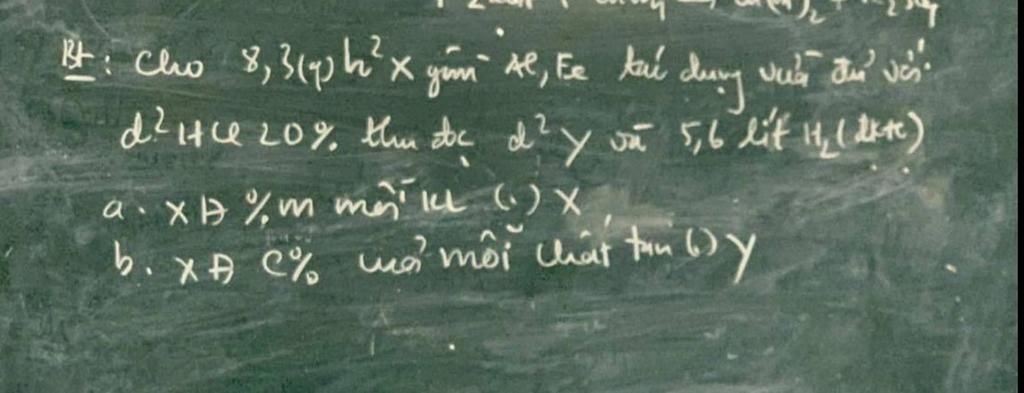 Bt: Cho 8,3(g) h² X gồm Al, Fe tác dụng vừa đủ với
d² HCl 20% thu đc d² Y và 5,6 lít H₂ (đktc)
a. XĐ %m mỗi KL (.) X
b. XĐ C% của mỗi chất tan (.) Y